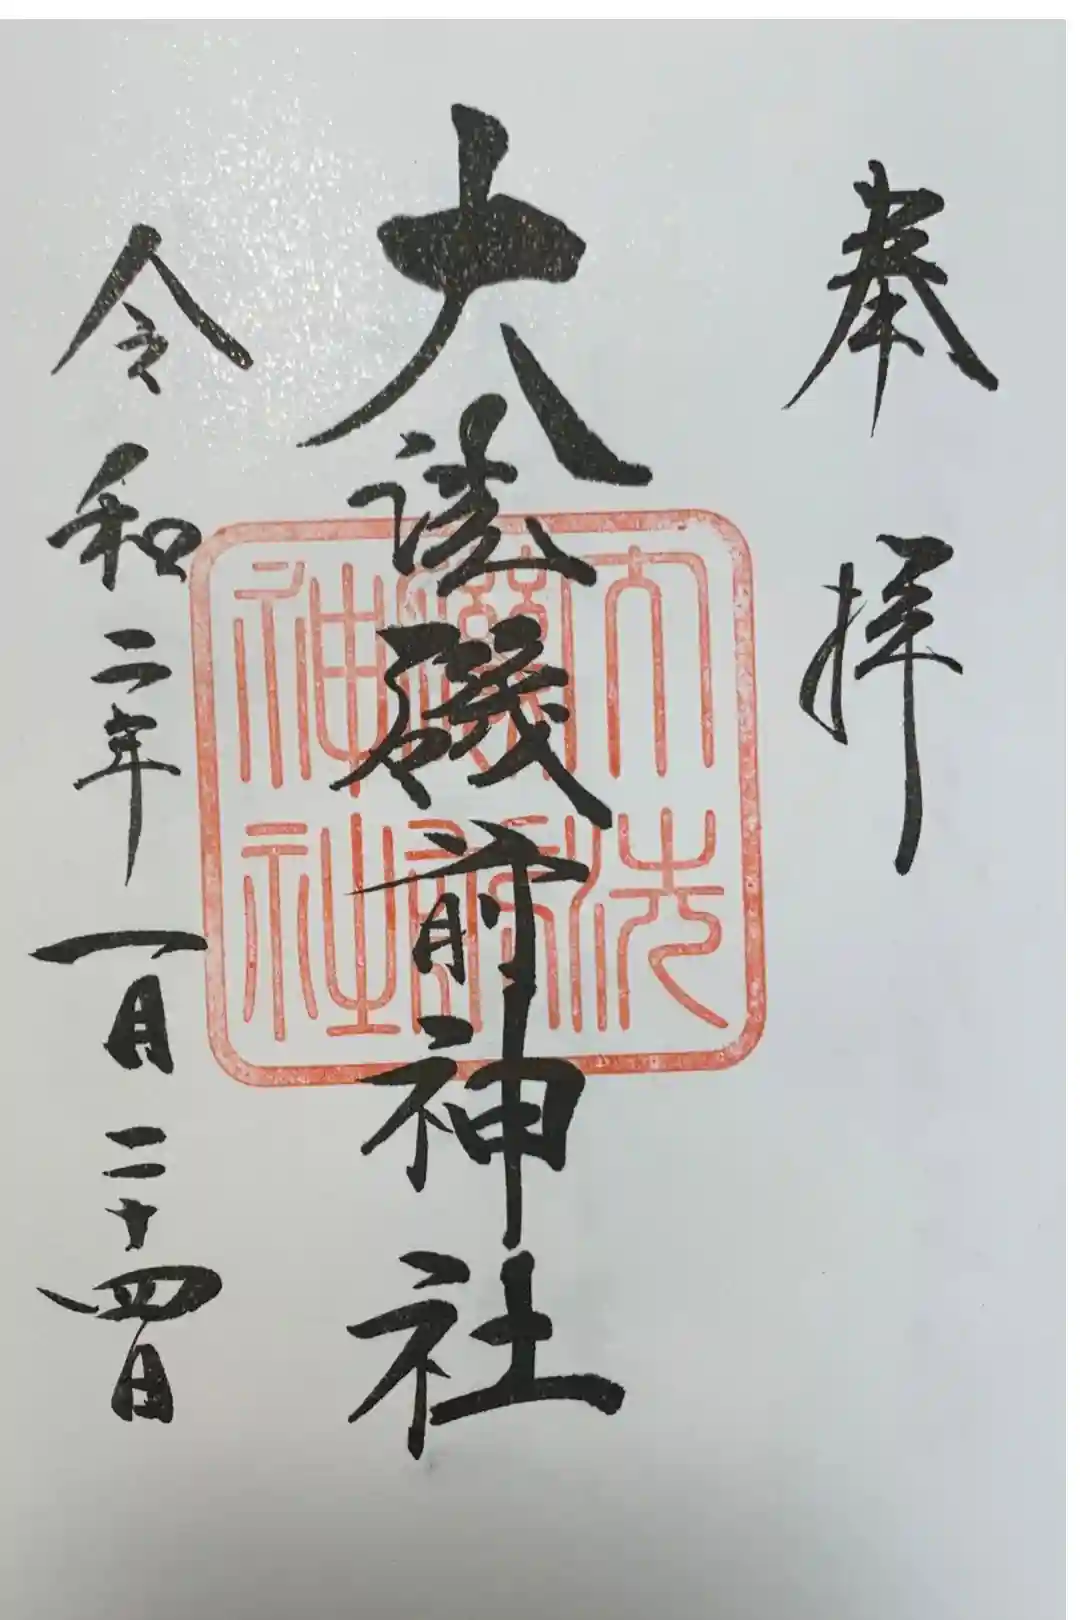 奉拝
大洗磯前神社
令和二年一月二十四日
大洗
磯前
神社